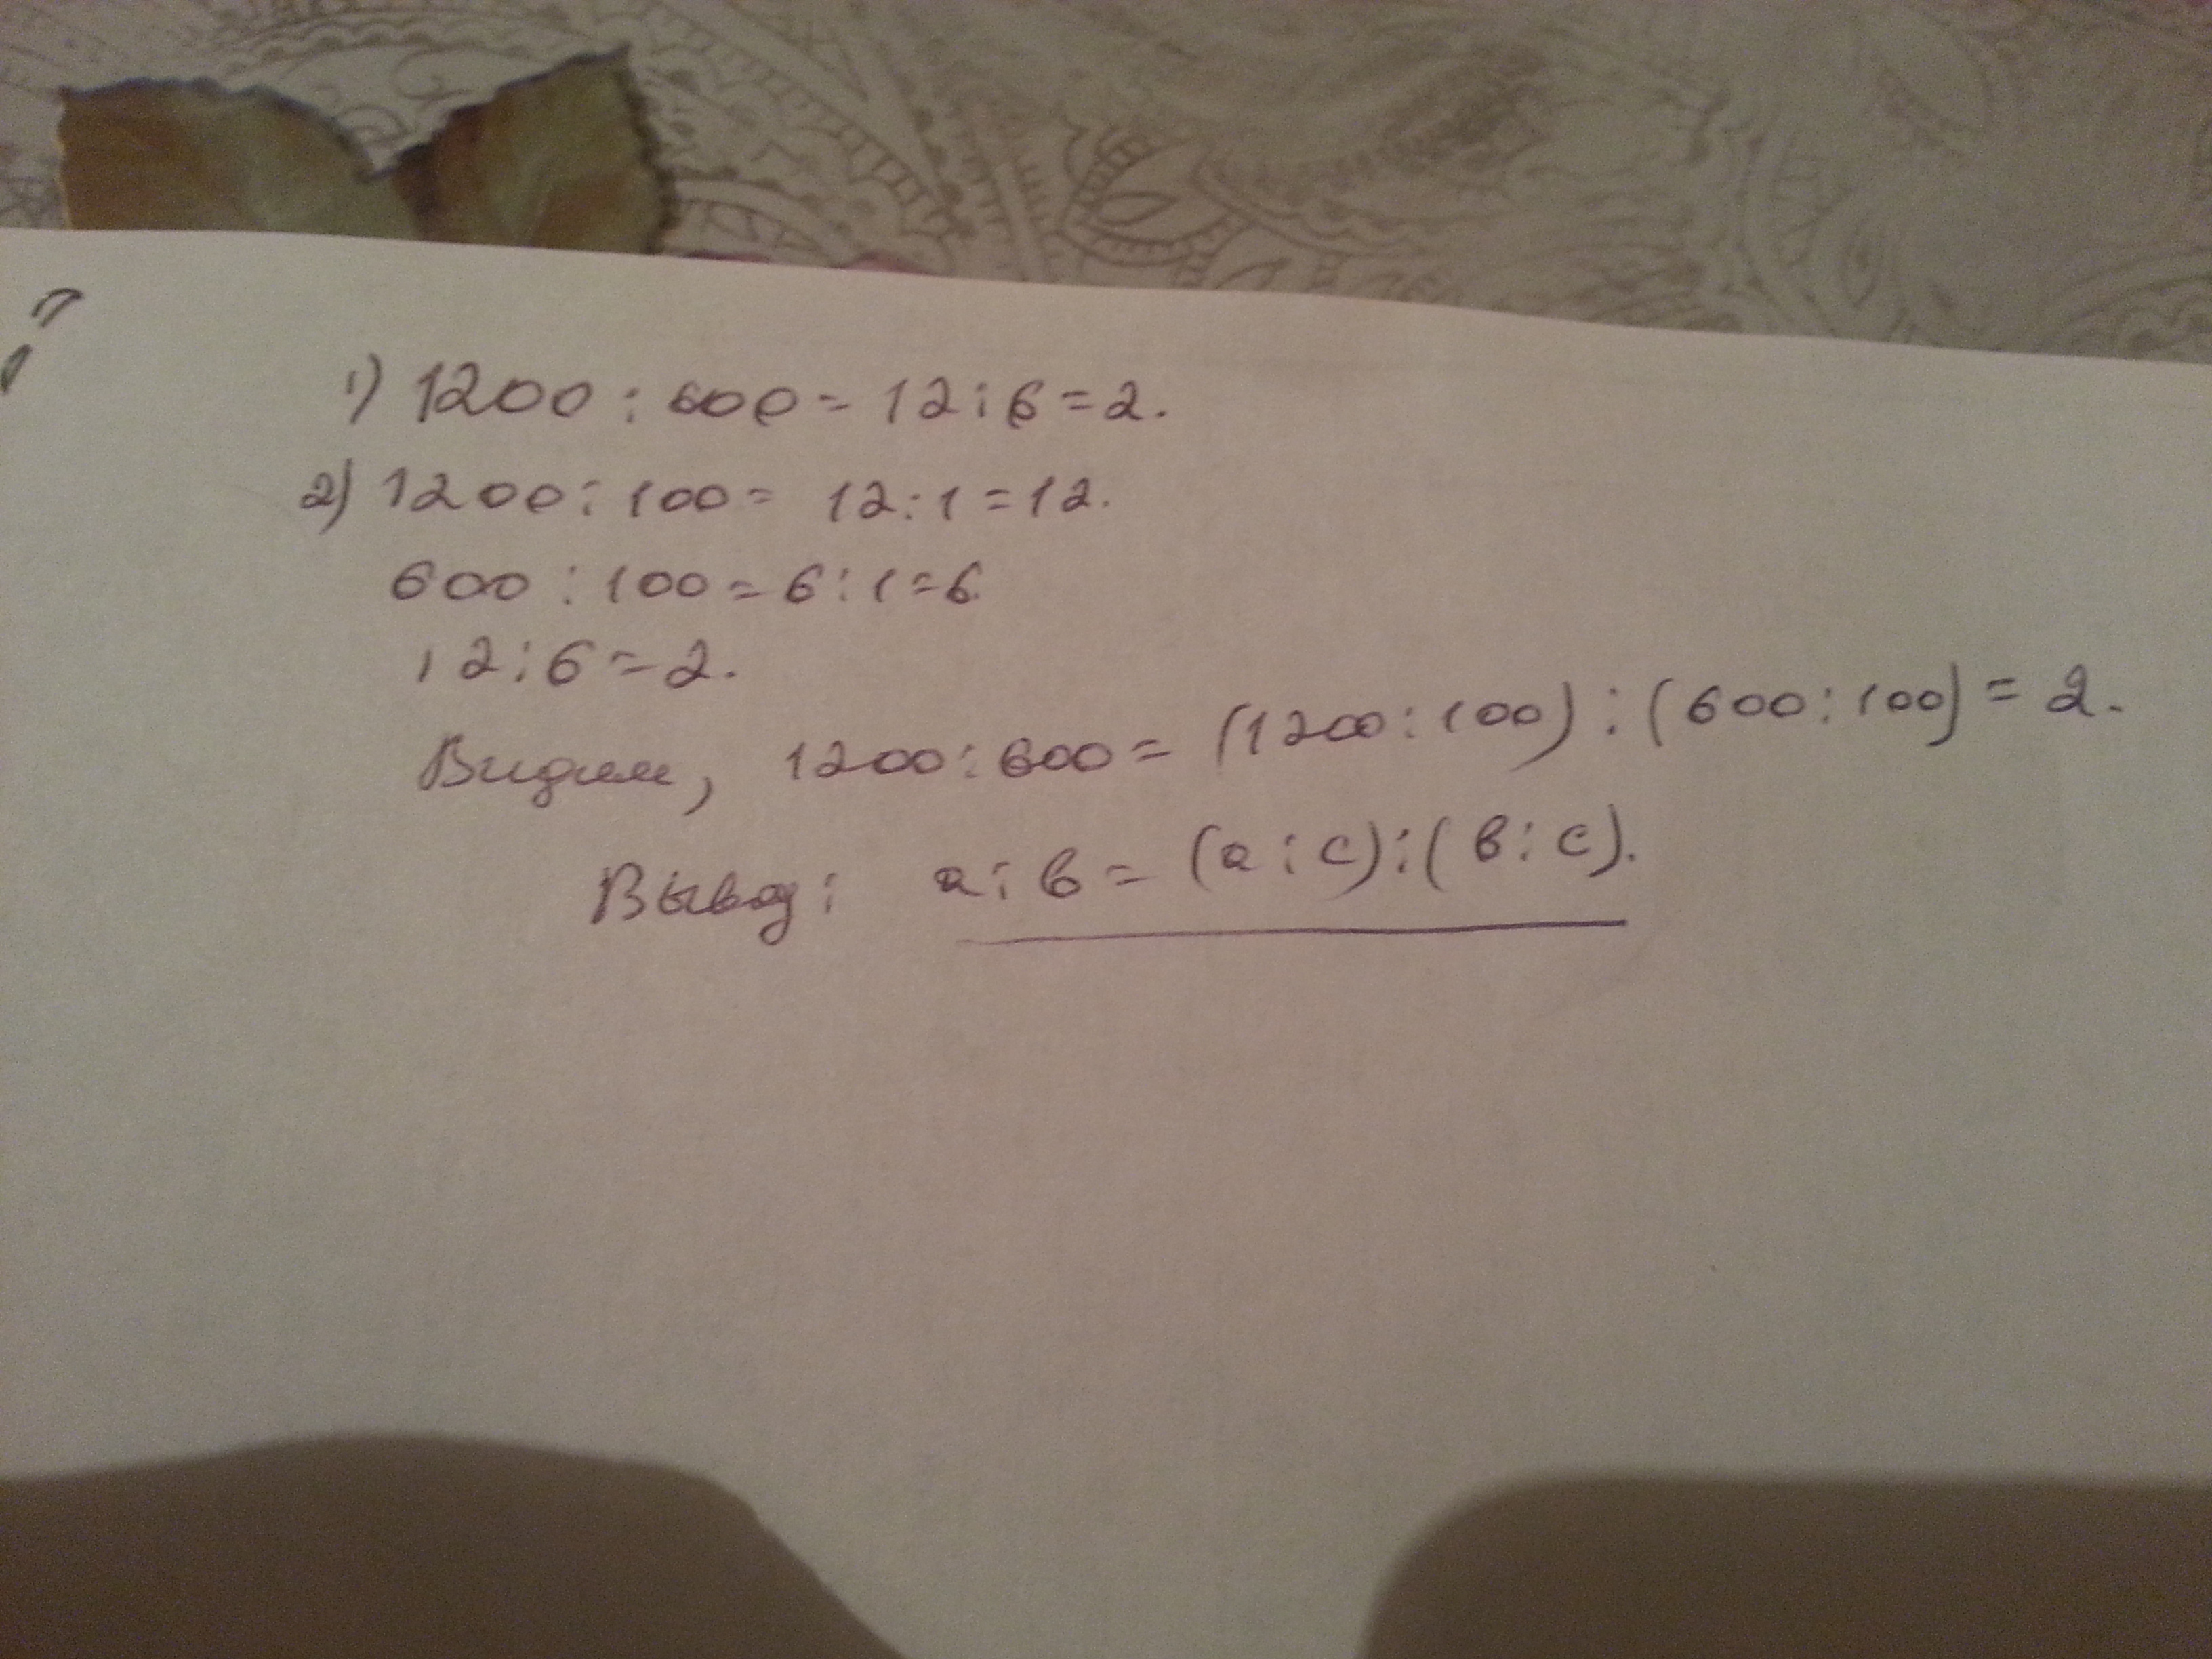 1) 1200 : 600 = 12 : 6 = 2.
2) 1200 : 100 = 12 : 1 = 12.
600 : 100 = 6 : 1 = 6.
12 : 6 = 2.
Видим, 1200 : 600 = (1200 : 100) : (600 : 100) = 2.
Вывод: а : в = (а : с) : (в : с).